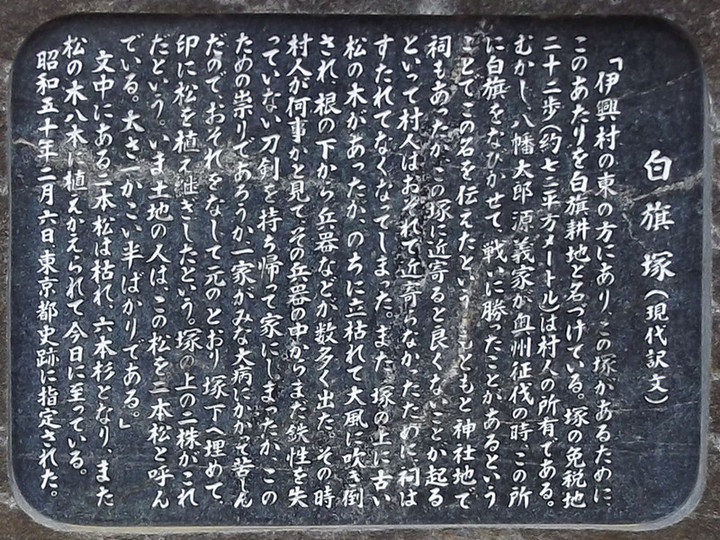 白旗塚（現代訳文）
「伊興村の東の方にあり、この塚があるために、
このあたりを白旗耕地と名づけている。塚の免税地
二十二歩（約七二平方メートル）は村人の所有である。
むかし、八幡太郎源義家が奥州征伐の時、この所
に白旗をなびかせて、戦いに勝ったことがあるという
ことでこの名を伝えたという。もともと神社地で
祠もあったが、この塚に近寄ると良くないことが起る
といって村人はおそれて近寄らなかったために祠は
すたれてなくなってしまった。また、塚の上に古い
松の木があったが、のちに立枯れて大風に吹き倒
され、根の下から兵器などが数多く出た。その時
村人が何事かと見て、その兵器の中からまだ鉄性を失
っていない刀剣を持ち帰って家にしまったが、この
ための祟りであろうか一家がみな大病にかかって苦しん
だので、おそれをなして元のとおり塚下へ埋めて、
印に松を植え継ぎしたという。塚の上の二株がこれ
だという。いま土地の人は、この松を二本松と呼ん
でいる。大さ一かこい半ばかりである。」
文中にある二本松は枯れ、六本杉となり、また
松の木八本に植えかえられて今日に至っている。
昭和五十年二月六日東京都史跡に指定された。